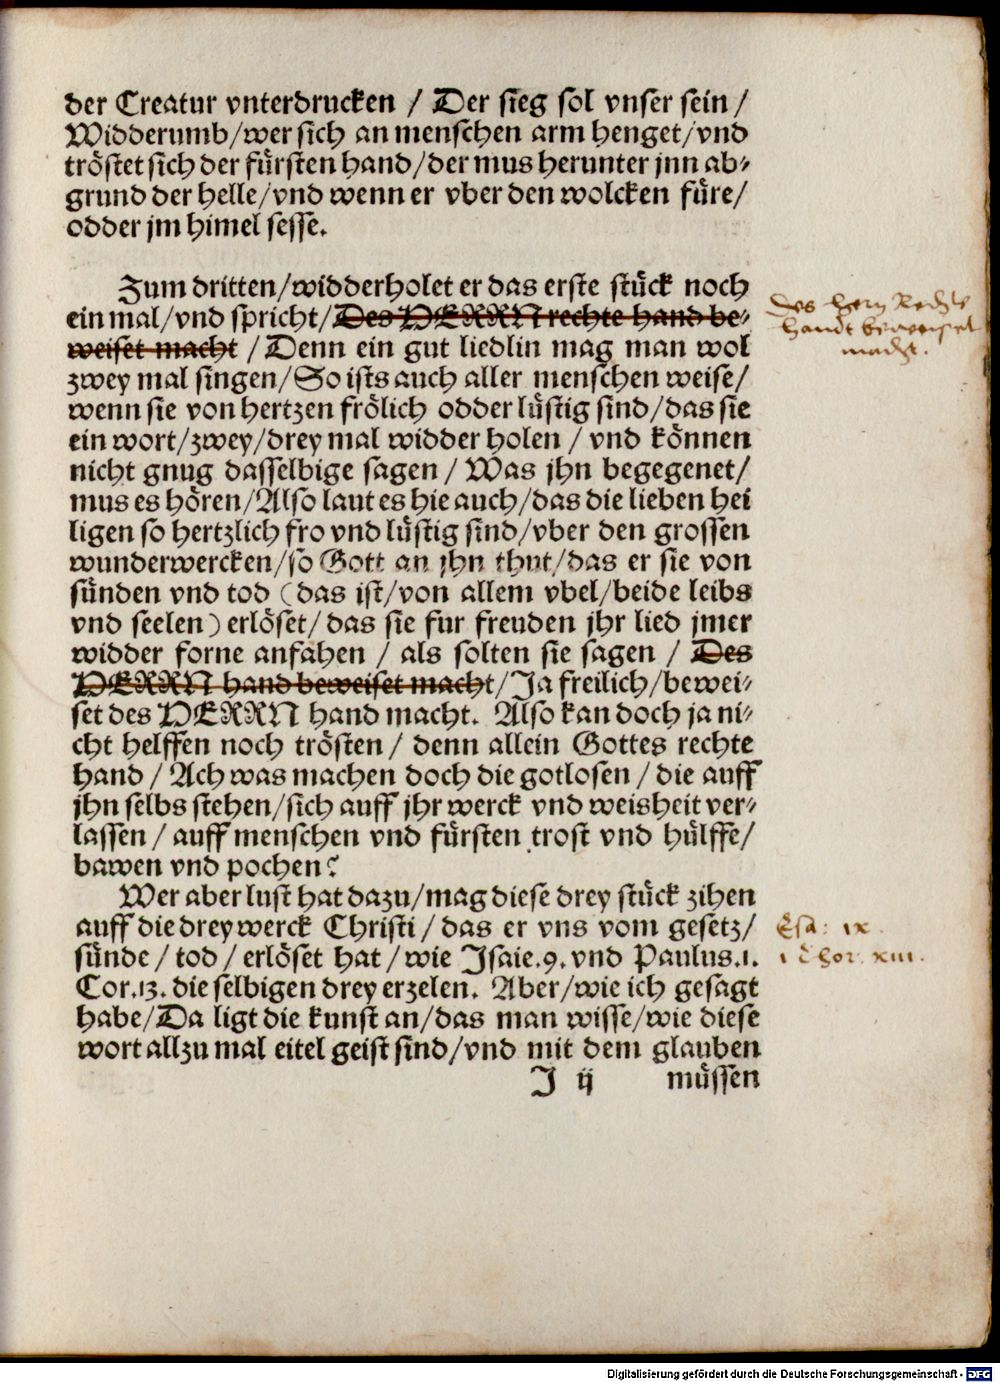 der Creatur vnterdrucken / Der sieg sol vnser sein /
Widderumb/wer sich an menschen arm henget/vnd
tröstet sich der fürsten hand/der mus herunter jnn ab⸗
grund der helle/vnd wenn er vber den wolcken füre/
odder jm himel sesse.
Zum dritten/widderholet er das erste stück noch
ein mal/vnd spricht/Des HERRN rechte hand be⸗
weiset macht / Denn ein gut liedlin mag man wol
zwey mal singen/So ists auch aller menschen weise/
wenn sie von hertzen frölich odder lüstig sind/das sie
ein wort/zwey/drey mal widder holen / vnd können
nicht gnug dasselbige sagen / Was jhn begegenet/
mus es hören/Also laut es hie auch/das die lieben hei
ligen so hertzlich fro vnd lüstig sind/vber den grossen
wunderwercken/so Gott an jhn thut/das er sie von
sünden vnd tod (das ist/von allem vbel/beide leibs
vnd seelen) erlöset/das sie fur freuden jhr lied jmer
widder forne anfahen / als solten sie sagen / Des
HERRN hand beweiset macht/Ja freilich/bewei⸗
set des HERRN hand macht. Also kan doch ja ni⸗
cht helffen noch trösten / denn allein Gottes rechte
hand / Ach was machen doch die gotlosen / die auff
jhn selbs stehen/sich auff jhr werck vnd weisheit ver⸗
lassen / auff menschen vnd fürsten trost vnd hülffe/
bawen vnd pochen?
Wer aber lust hat dazu/mag diese drey stück zihen
auff die drey werck Christi / das er vns vom gesetz/
sünde / tod / erlöset hat / wie Isaie.9. vnd Paulus.1.
Cor.13. die selbigen drey erzelen. Aber/wie ich gesagt
habe/Da ligt die kunst an/das man wisse/wie diese
wort allzu mal eitel geist sind/vnd mit dem glauben
J ij müssen
des hern Rechte
handt beweiset
macht.
Esa: ix.
1 Chor. xiii.
Digitalisierung gefördert durch die Deutsche Forschungsgemeinschaft - DFG